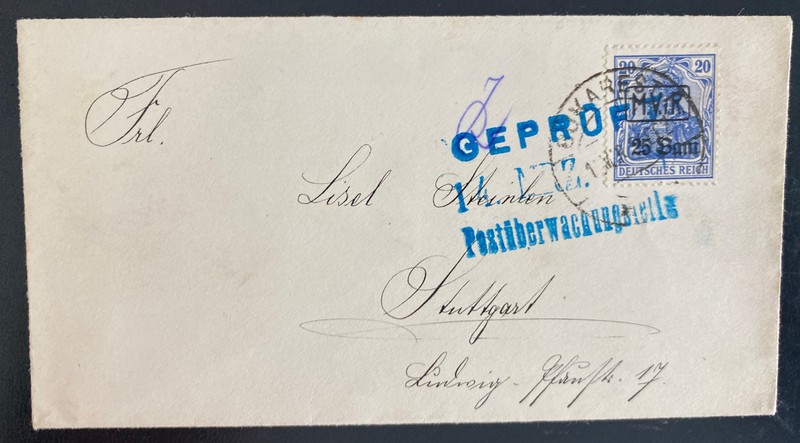 Frl.
Lisel Steinlen
Stuttgart
Ludwig-Pfaustr. 17.
GEPRÜFT
14. MRZ.
Postüberwachungsstelle
BUKAREST
20 20
M.V.i.R.
25 Bani
DEUTSCHES REICH